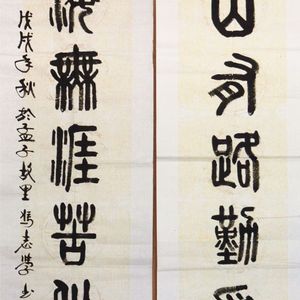 山有路勤為
海無涯苦作
戊戌年秋於孟子故里馮志學书